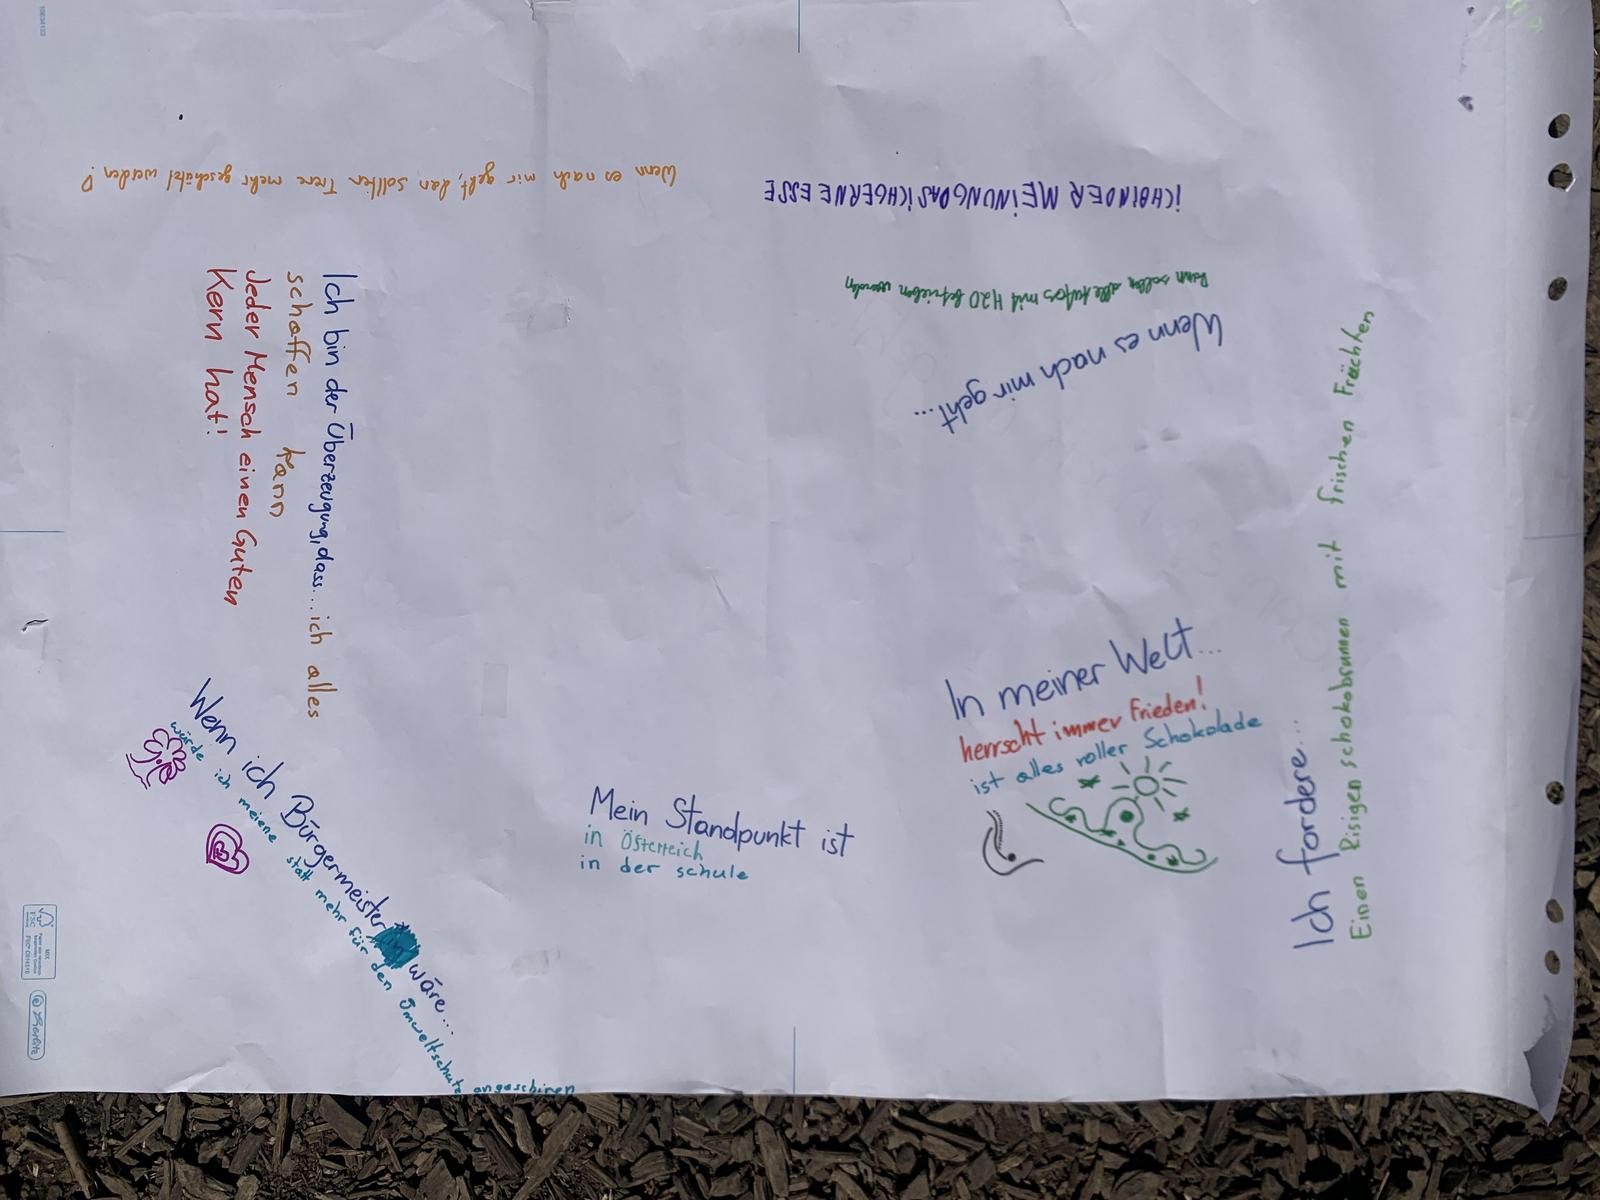 Wenn es nach mir geht, dan sollten Tiere mehr geschützt werden!
iCH BIN DER MEINUNG DAS iCH GERNE ESSE
Wenn es nach mir geht...
Dann sollen alle Autos mit H2O betrieben werden
Ich bin der Überzeugung, dass... ich alles
schaffen kann
Jeder Mensch einen Guten
Kern hat!
Wenn ich Bürgermeister*in wäre...
würde ich meiene statt mehr für den Umweltschutz angaschiren
Mein Standpunkt ist
in Österreich
in der schule
In meiner Welt...
herrscht immer Frieden!
ist alles voller Schokolade
Ich fordere...
Einen Risigen schokobrunnen mit frischen Früchten
MIX
FSC
Herlitz